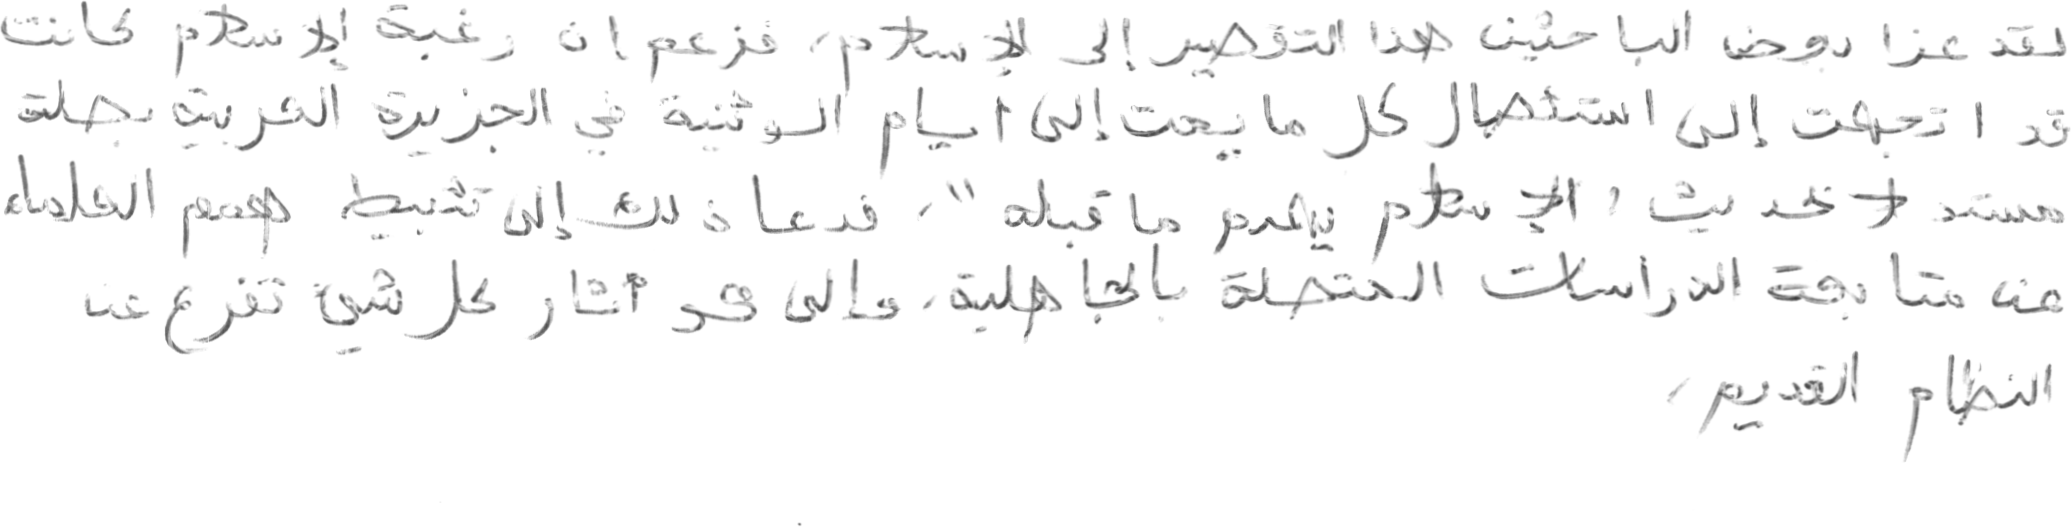 لقد عزا بعض الباحثين هذا التقصير إلى الإسلام، فزعم ان رغبة الإسلام كانت
قد اتجهت إلى استئصال كل ما يمت إلى ايام الوثنية في الجزيرة العربية بصلة
مستدلا بحديث "الإسلام يهدم ما قبله"، فدعا ذلك إلى تثبيط همم العلماء
عن متابعة الدراسات المتصلة بالجاهلية، وإلى محو آثار كل شيء تفرع عن
النظام القديم،